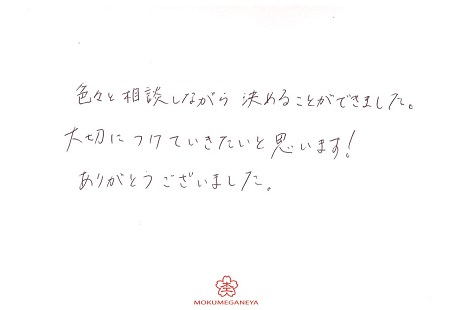 色々と相談しながら決めることができました。
大切につけていきたいと思います!
ありがとうございました。
MOKUMEGANEYA